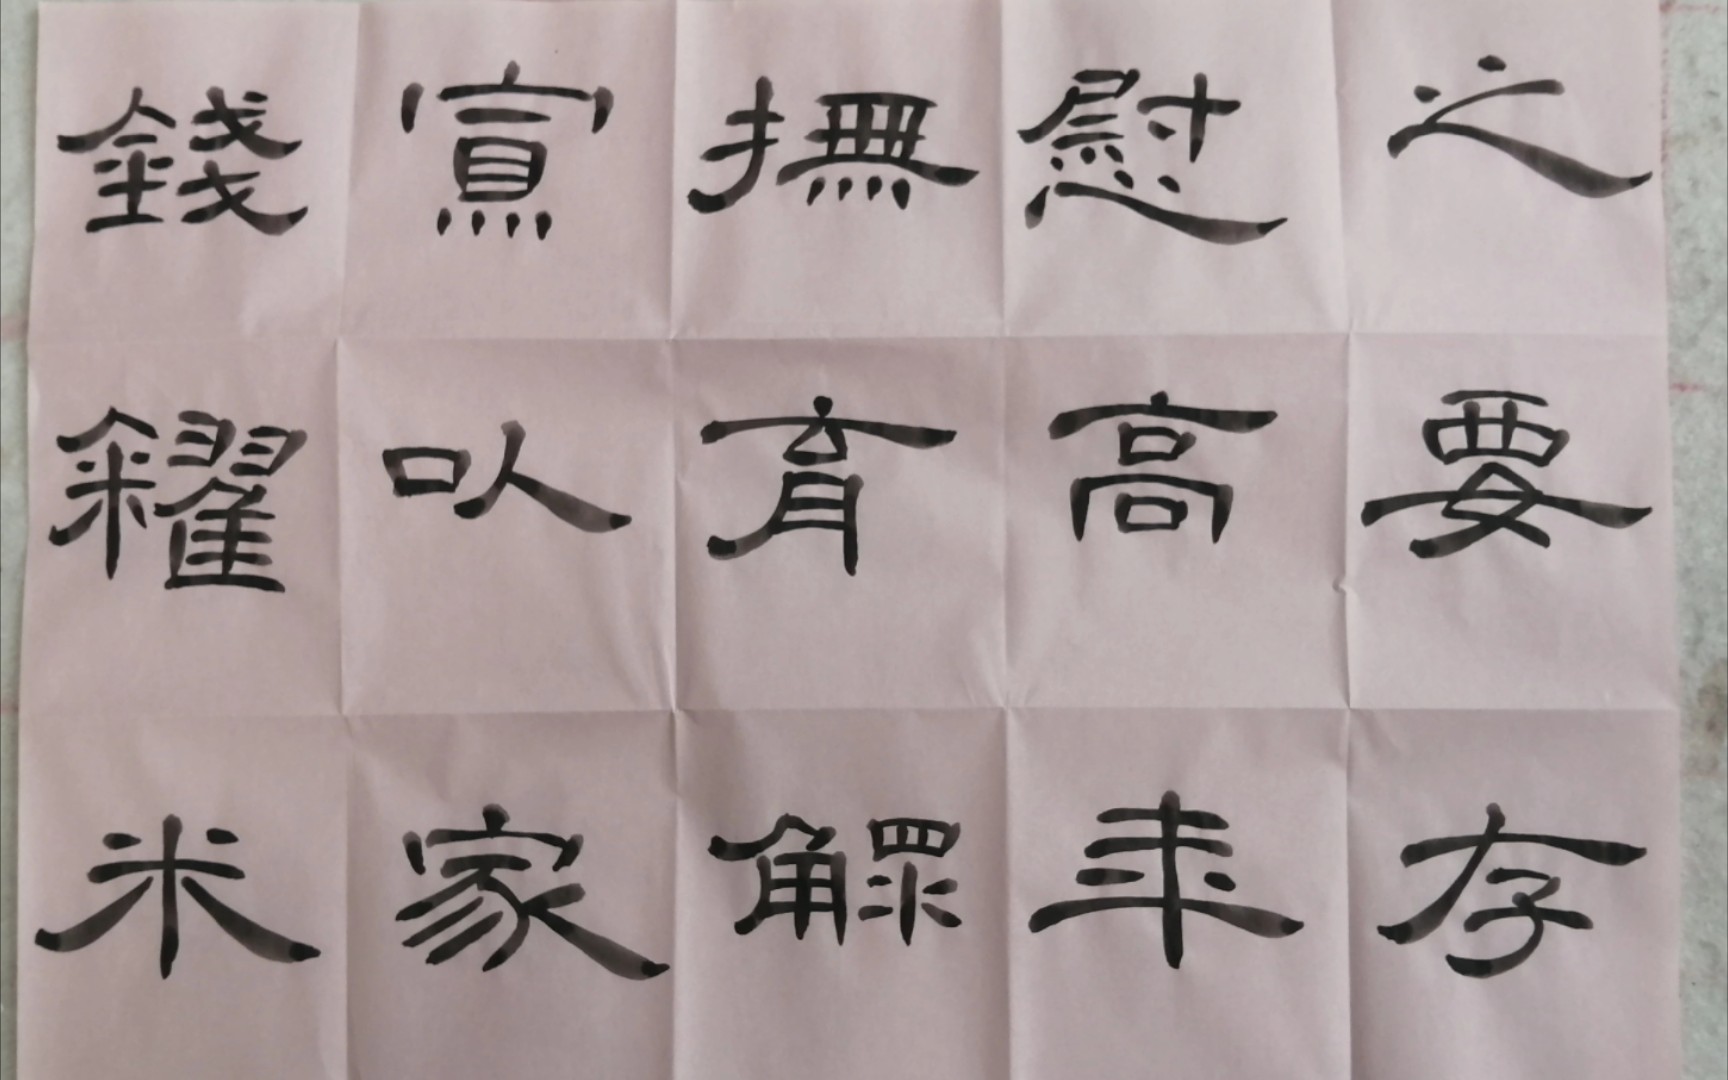 之要存
慰高年
撫育鰥
寡以家
錢糴米